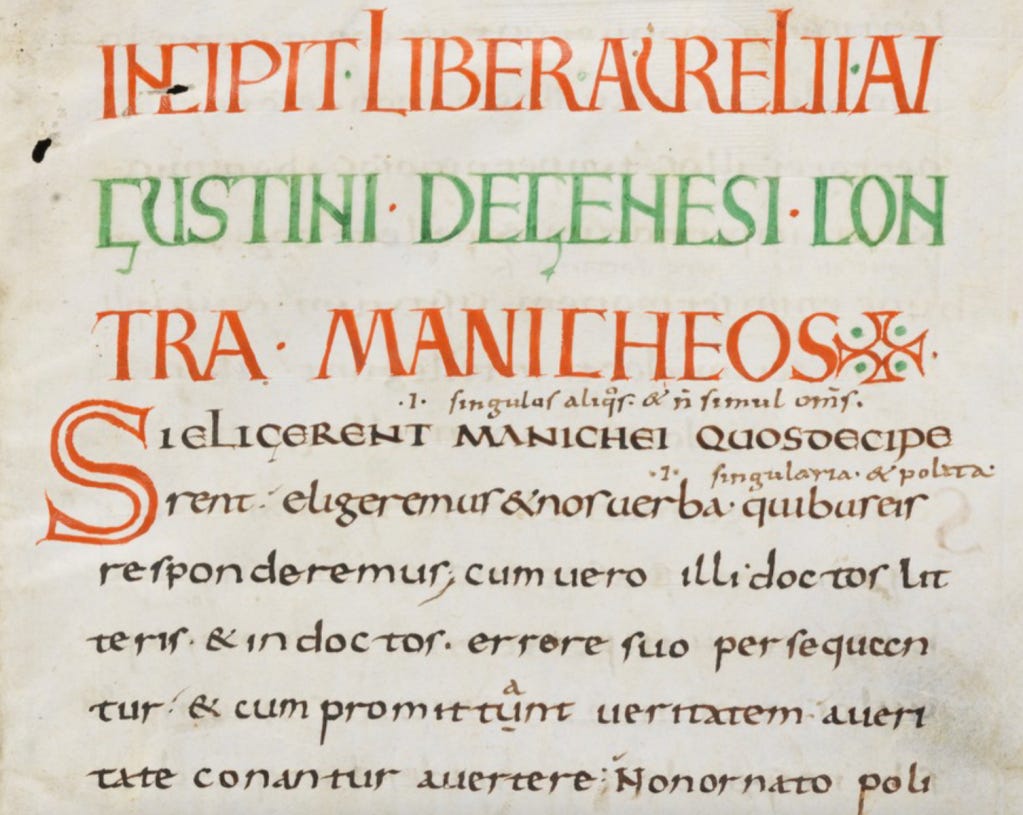 INCIPIT · LIBER · AURELII · AU
GUSTINI · DE GENESI · CON
TRA · MANICHEOS
·I· singulos aliq̊s· & n̄ simul om̄s·
SI ELIGERENT MANICHEI QUOS DECIPE
·I· singularia· & polita·
rent· eligeremus & nos uerba· quibus eis
responderemus; cum uero illi doctos lit
teris· & indoctos· errore suo persequeen
a
tur· & cum promittunt ueritatem· a ueri
tate conantur auertere· Non ornato poli